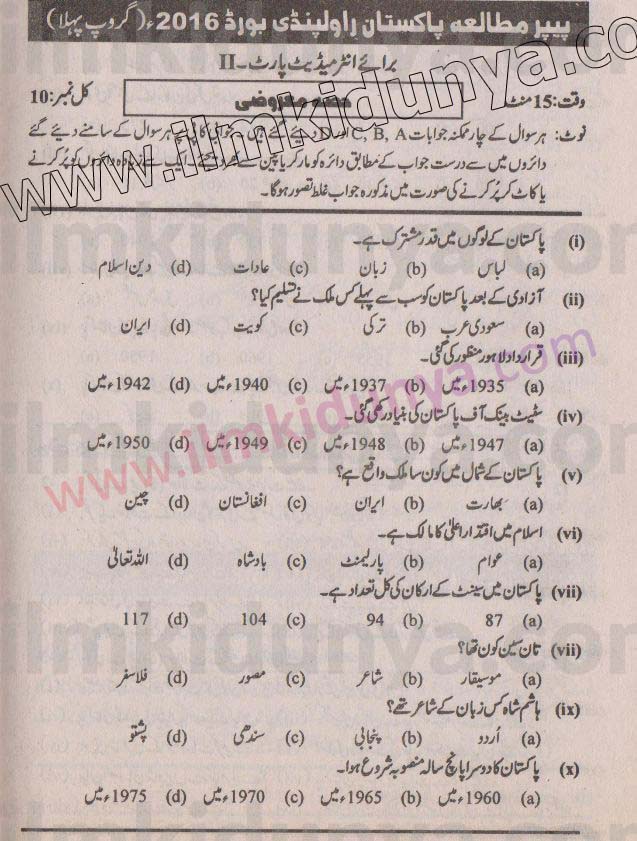 پیپر مطالعہ پاکستان راولپنڈی بورڈ 2016ء (گروپ پہلا)
برائے انٹرمیڈیٹ پارٹ۔II
وقت:15 منٹ حصہ معروضی کل نمبر:10
نوٹ: ہر سوال کے چار ممکنہ جوابات A، B، C اور D دیئے گئے ہیں۔ جوابی کاپی پر ہر سوال کے سامنے دیئے گئے
دائروں میں سے درست جواب کے مطابق دائرہ کو مارکر یا پین سے بھر دیجئے۔ ایک سے زیادہ دائروں کو پُر کرنے
یا کاٹ کر پُر کرنے کی صورت میں مذکورہ جواب غلط تصور ہوگا۔
(i) پاکستان کے لوگوں میں قدر مشترک ہے۔
(a) لباس (b) زبان (c) عادات (d) دین اسلام
(ii) آزادی کے بعد پاکستان کو سب سے پہلے کس ملک نے تسلیم کیا؟
(a) سعودی عرب (b) ترکی (c) کویت (d) ایران
(iii) قرارداد لاہور منظور کی گئی۔
(a) 1935ء میں (b) 1937ء میں (c) 1940ء میں (d) 1942ء میں
(iv) سٹیٹ بینک آف پاکستان کی بنیاد رکھی گئی۔
(a) 1947ء میں (b) 1948ء میں (c) 1949ء میں (d) 1950ء میں
(v) پاکستان کے شمال میں کون سا ملک واقع ہے؟
(a) بھارت (b) ایران (c) افغانستان (d) چین
(vi) اسلام میں اقتدار اعلیٰ کا مالک ہے۔
(a) عوام (b) پارلیمنٹ (c) بادشاہ (d) اللہ تعالیٰ
(vii) پاکستان میں سینٹ کے ارکان کی کل تعداد ہے۔
(a) 87 (b) 94 (c) 104 (d) 117
(vii) تان سین کون تھا؟
(a) موسیقار (b) شاعر (c) مصور (d) فلاسفر
(ix) ہاشم شاہ کس زبان کے شاعر تھے؟
(a) اُردو (b) پنجابی (c) سندھی (d) پشتو
(x) پاکستان کا دوسرا پانچ سالہ منصوبہ شروع ہوا۔
(a) 1960ء میں (b) 1965ء میں (c) 1970ء میں (d) 1975ء میں
www.ilmkidunya.com
www.ilmkidunya.com
ilmkidunya.com
ilmkidunya.com
ilmkidunya.com
ilmkidunya.com